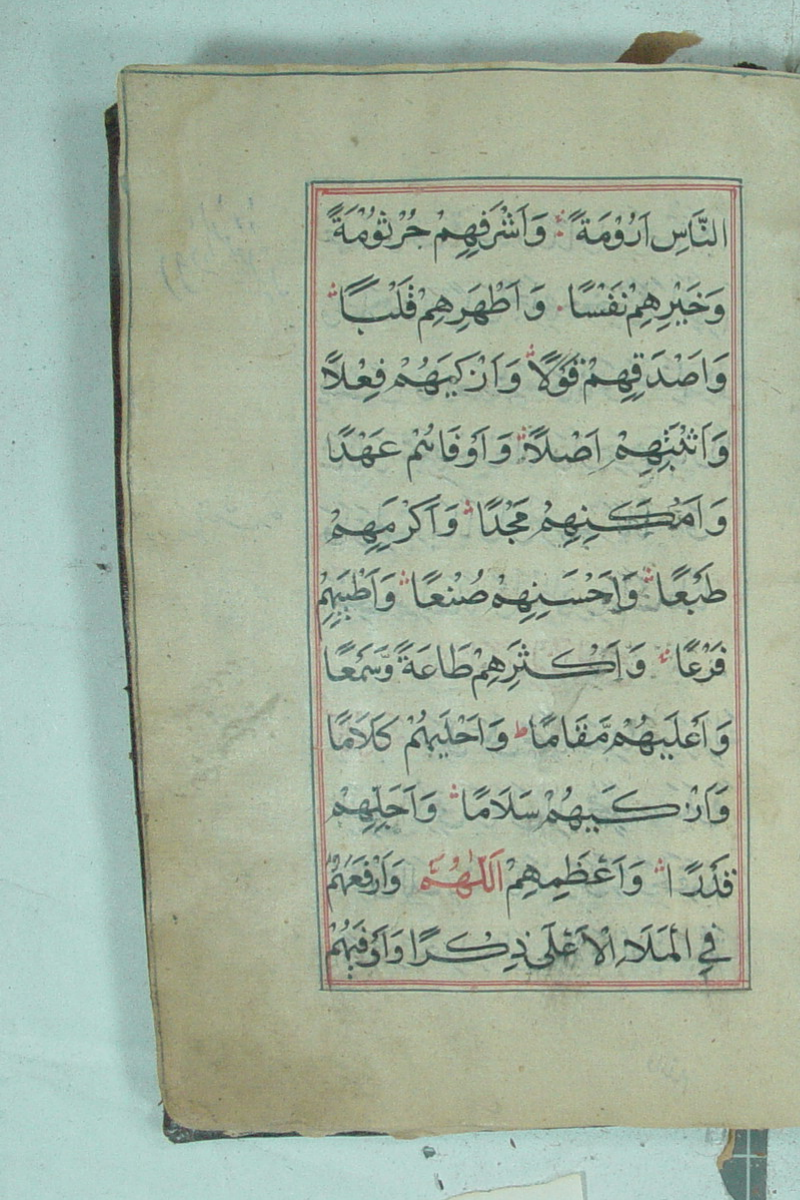 النَّاسِ اَرُوْمَةً وَاَشْرَفِهِمْ جُرْثُوْمَةً
وَخَيْرِهِمْ نَفْسًا وَاَطْهَرِهِمْ قَلْبًا
وَاَصْدَقِهِمْ قَوْلًا وَاَزْكَيهُمْ فِعْلًا
وَاَثْبَتِهِمْ اَصْلًا وَاَوْفَاهُمْ عَهْدًا
وَاَمْكَنِهِمْ مَجْدًا وَاَكْرَمِهِمْ
طَبْعًا وَاَحْسَنِهِمْ صُنْعًا وَاَطْيَبِهِمْ
فَرْعًا وَاَكْثَرِهِمْ طَاعَةً وَّسَمْعًا
وَاَعْلَيهُمْ مَّقَامًا ط وَاَحْلَيهُمْ كَلَامًا
وَاَزْكَيهُمْ سَلَامًا وَاَجَلِّهِمْ
قَدْرًا وَاَعْظَمِهِمْ اَللّٰهُمَّ وَاَرْفَعِهُمْ
فِي الْمَلَاءِ الْاَعْلَى ذِكْرًا وَاَوْفَيهُمْ